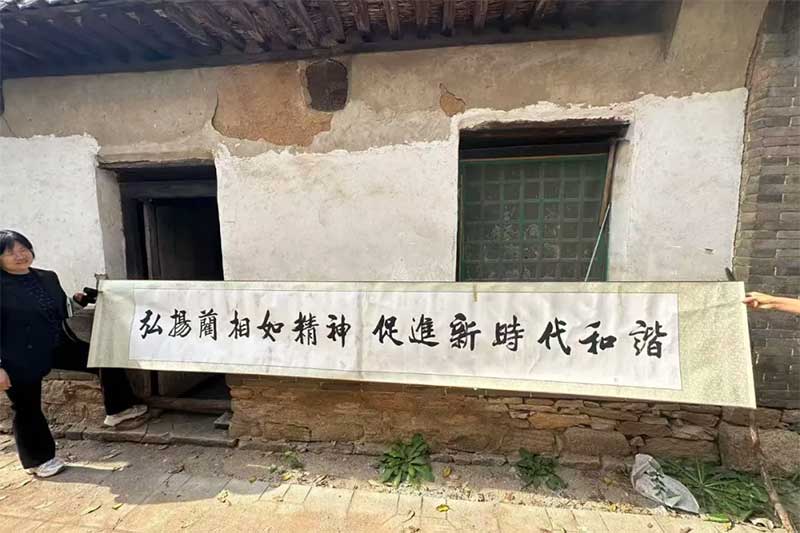 弘揚藺相如精神 促進新時代和諧